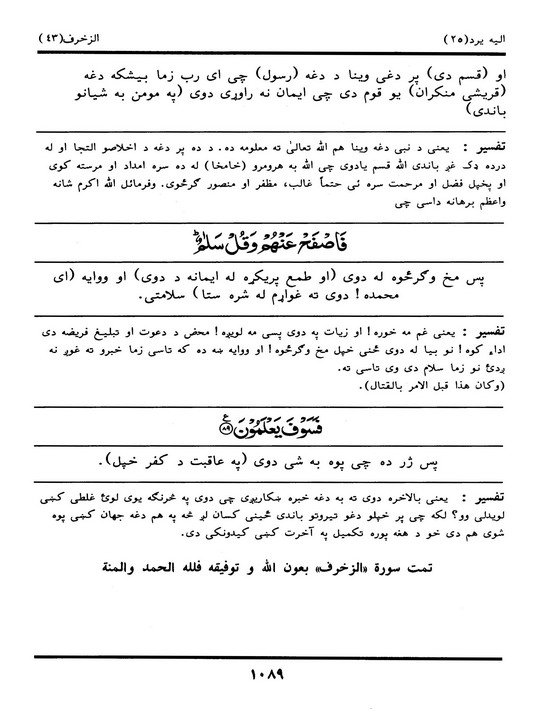 الیه یرد(٢٥)
الزخرف(٤٣)
او (قسم دی) پر دغی وینا د دغه (رسول) چی ای رب زما بیشکه دغه
(قریشی منکران) یو قوم دی چی ایمان نه راوړی دوی (په مومن به شیانو
باندی)
تفسیر : یعنی د نبی دغه وینا هم الله تعالیٰ ته معلومه ده. د ده پر دغه د اخلاصو التجا او له
درده ډک غږ باندی الله قسم یادوی چی الله به هرومرو (خامخا) له ده سره امداد او مرسته کوی
او پخپل فضل او مرحمت سره ئی حتماً غالب، مظفر او منصور ګرځوی. وفرمائل الله اکرم شانه
واعظم برهانه داسی چی
فَاصْفَحْ عَنْهُمْ وَقُلْ سَلٰمٌ ؕ
پس مخ وګرځوه له دوی (او طمع پریکړه له ایمانه د دوی) او ووایه (ای
محمده! دوی ته غواړم له شره ستا) سلامتی.
تفسیر : یعنی غم مه خوره! او زیات په دوی پسی مه لویږه! محض د دعوت او تبلیغ فریضه دی
اداء کوه! نو بیا له دوی ځنی خپل مخ وګرځوه! او ووایه ښه ده که تاسی زما خبرو ته غوږ نه
ږدئ نو زما سلام دی وی تاسی ته.
(وکان هذا قبل الامر بالقتال).
فَسَوْفَ يَعْلَمُوْنَ ﴿٨٩﴾ ع
پس ژر ده چی پوه به شی دوی (په عاقبت د کفر خپل).
تفسیر : یعنی بالاخره دوی ته به دغه خبره ښکاریږی چی دوی په څرنګه یوی لوئ غلطی کښی
لویدلی وو؟ لکه چی پر خپلو دغو تیروتو باندی ځینی کسان لږ څه په هم دغه جهان کښی پوه
شوی هم دی خو د هغه پوره تکمیل په آخرت کښی کیدونکی دی.
تمت سورة «الزخرف» بعون الله و توفیقه فلله الحمد والمنة
١٠٨٩